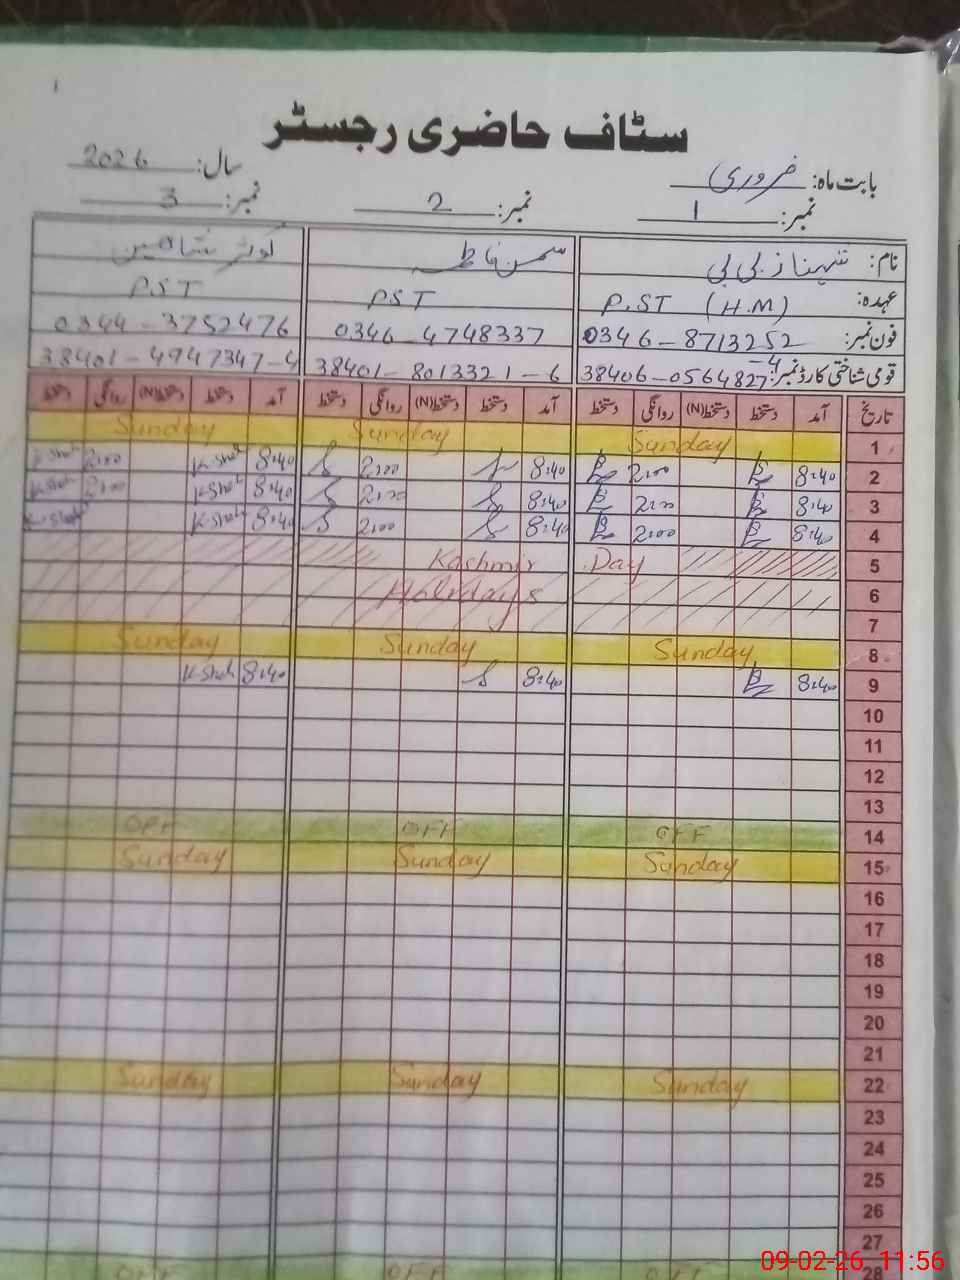 سٹاف حاضری رجسٹر
بابت ماہ: فروری سال: 2026
نمبر: 1 نمبر: 2 نمبر: 3
نام: شہناز بی بی سمن فاطمہ کوثر شاہین
عہدہ: P.ST (H.M) PST P.ST
فون نمبر: 0346-8713252 0346-4748337 0344-3752476
قومی شناختی کارڈ نمبر: 38406-0564827-4 38401-8013321-6 38401-4947347-4
تاریخ آمد دستخط دستخط(N) روانگی دستخط آمد دستخط دستخط(N) روانگی دستخط آمد دستخط دستخط(N) روانگی دستخط
1 Sunday Sunday Sunday
2 8:40 2:00 8:40 2:00 8:40 K-Shah 2:00 K-Shah
3 8:40 2:00 8:40 2:00 8:40 K-Shah 2:00 K-Shah
4 8:40 2:00 8:40 2:00 8:40 K-Shah K-Shah
5 Kashmir Day
6 Holidays
7
8 Sunday Sunday Sunday
9 8:40 8:40 8:40 K-Shah
10
11
12
13
14 OFF OFF OFF
15 Sunday Sunday Sunday
16
17
18
19
20
21
22 Sunday Sunday Sunday
23
24
25
26
27
28 OFF OFF OFF
09-02-26 11:56